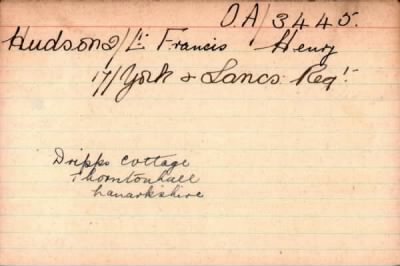 O.A/3445.
Hudson 2/Lt Francis Henry
17/York & Lancs: Regt.
Dripps Cottage
Thorntonhall
Lanarkshire